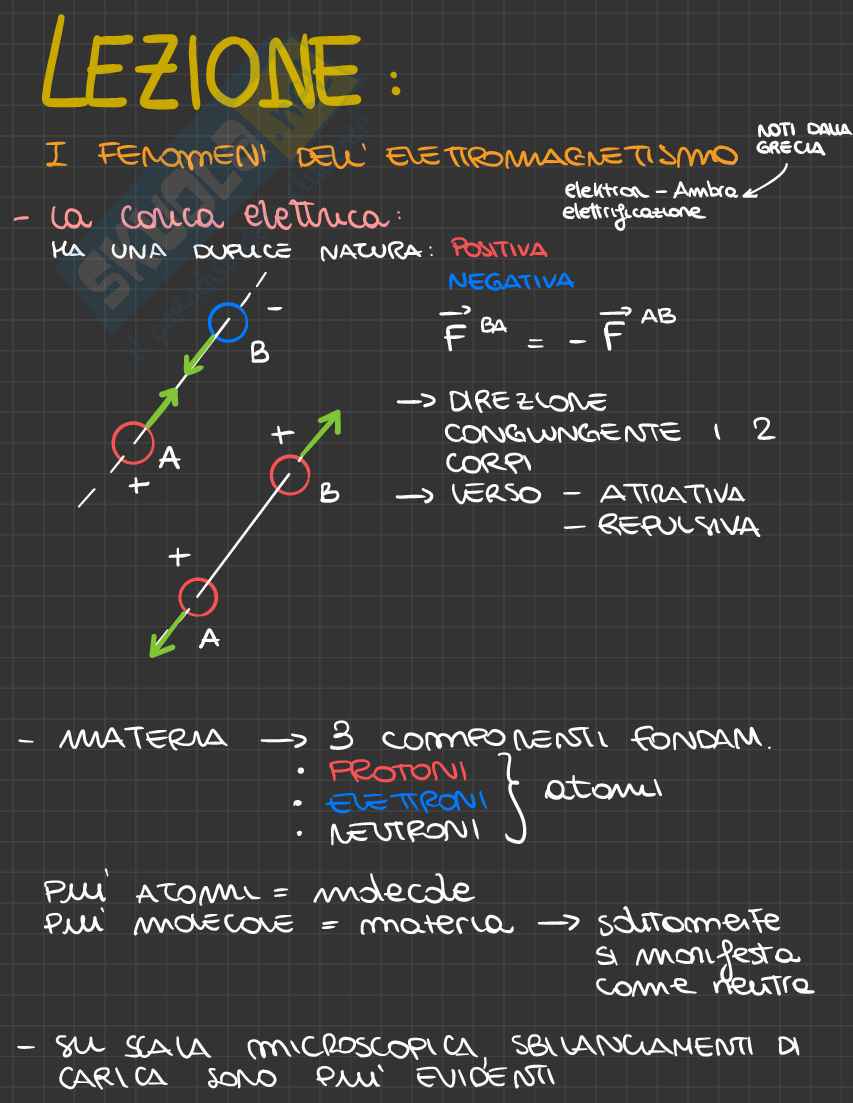 LEZIONE:
NOTI DALLA
GRECIA
I FENOMENI DELL' ELETTROMAGNETISMO
elektron - Ambra
elettrificazione
- La carica elettrica:
HA UNA DUPLICE NATURA: POSITIVA
NEGATIVA
-
B
F BA = - F AB
A
+
→ DIREZIONE
CONGIUNGENTE I 2
CORPI
+
B
→ VERSO - ATTRATIVA
- REPULSIVA
+
A
- MATERIA → 3 COMPONENTI FONDAM.
• PROTONI
• ELETTRONI
• NEUTRONI
atomi
PIU' ATOMI = molecole
PIU' MOLECOLE = materia → solitamente
si manifesta
come neutra
- SU SCALA MICROSCOPICA, SBILANCIAMENTI DI
CARICA SONO PIU' EVIDENTI